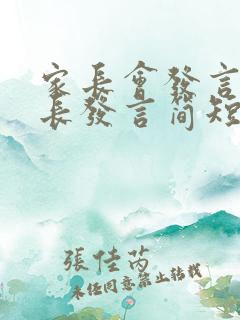 家長會發言
長發言簡短
張佳芮
未經同意禁止轉載